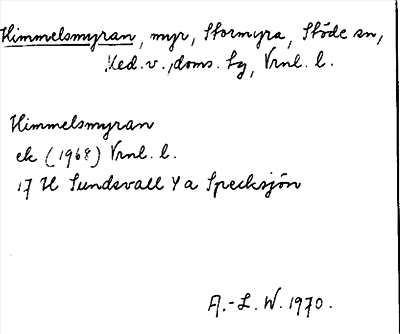 Himmelsmyran, myr, Stormyra, Stöde sn,
Med. v., doms. bg, Vrnl. l.
Himmelsmyran
ek (1968) Vrnl. l.
17 H Sundsvall Y a Specksjön
A.-L. W. 1970.